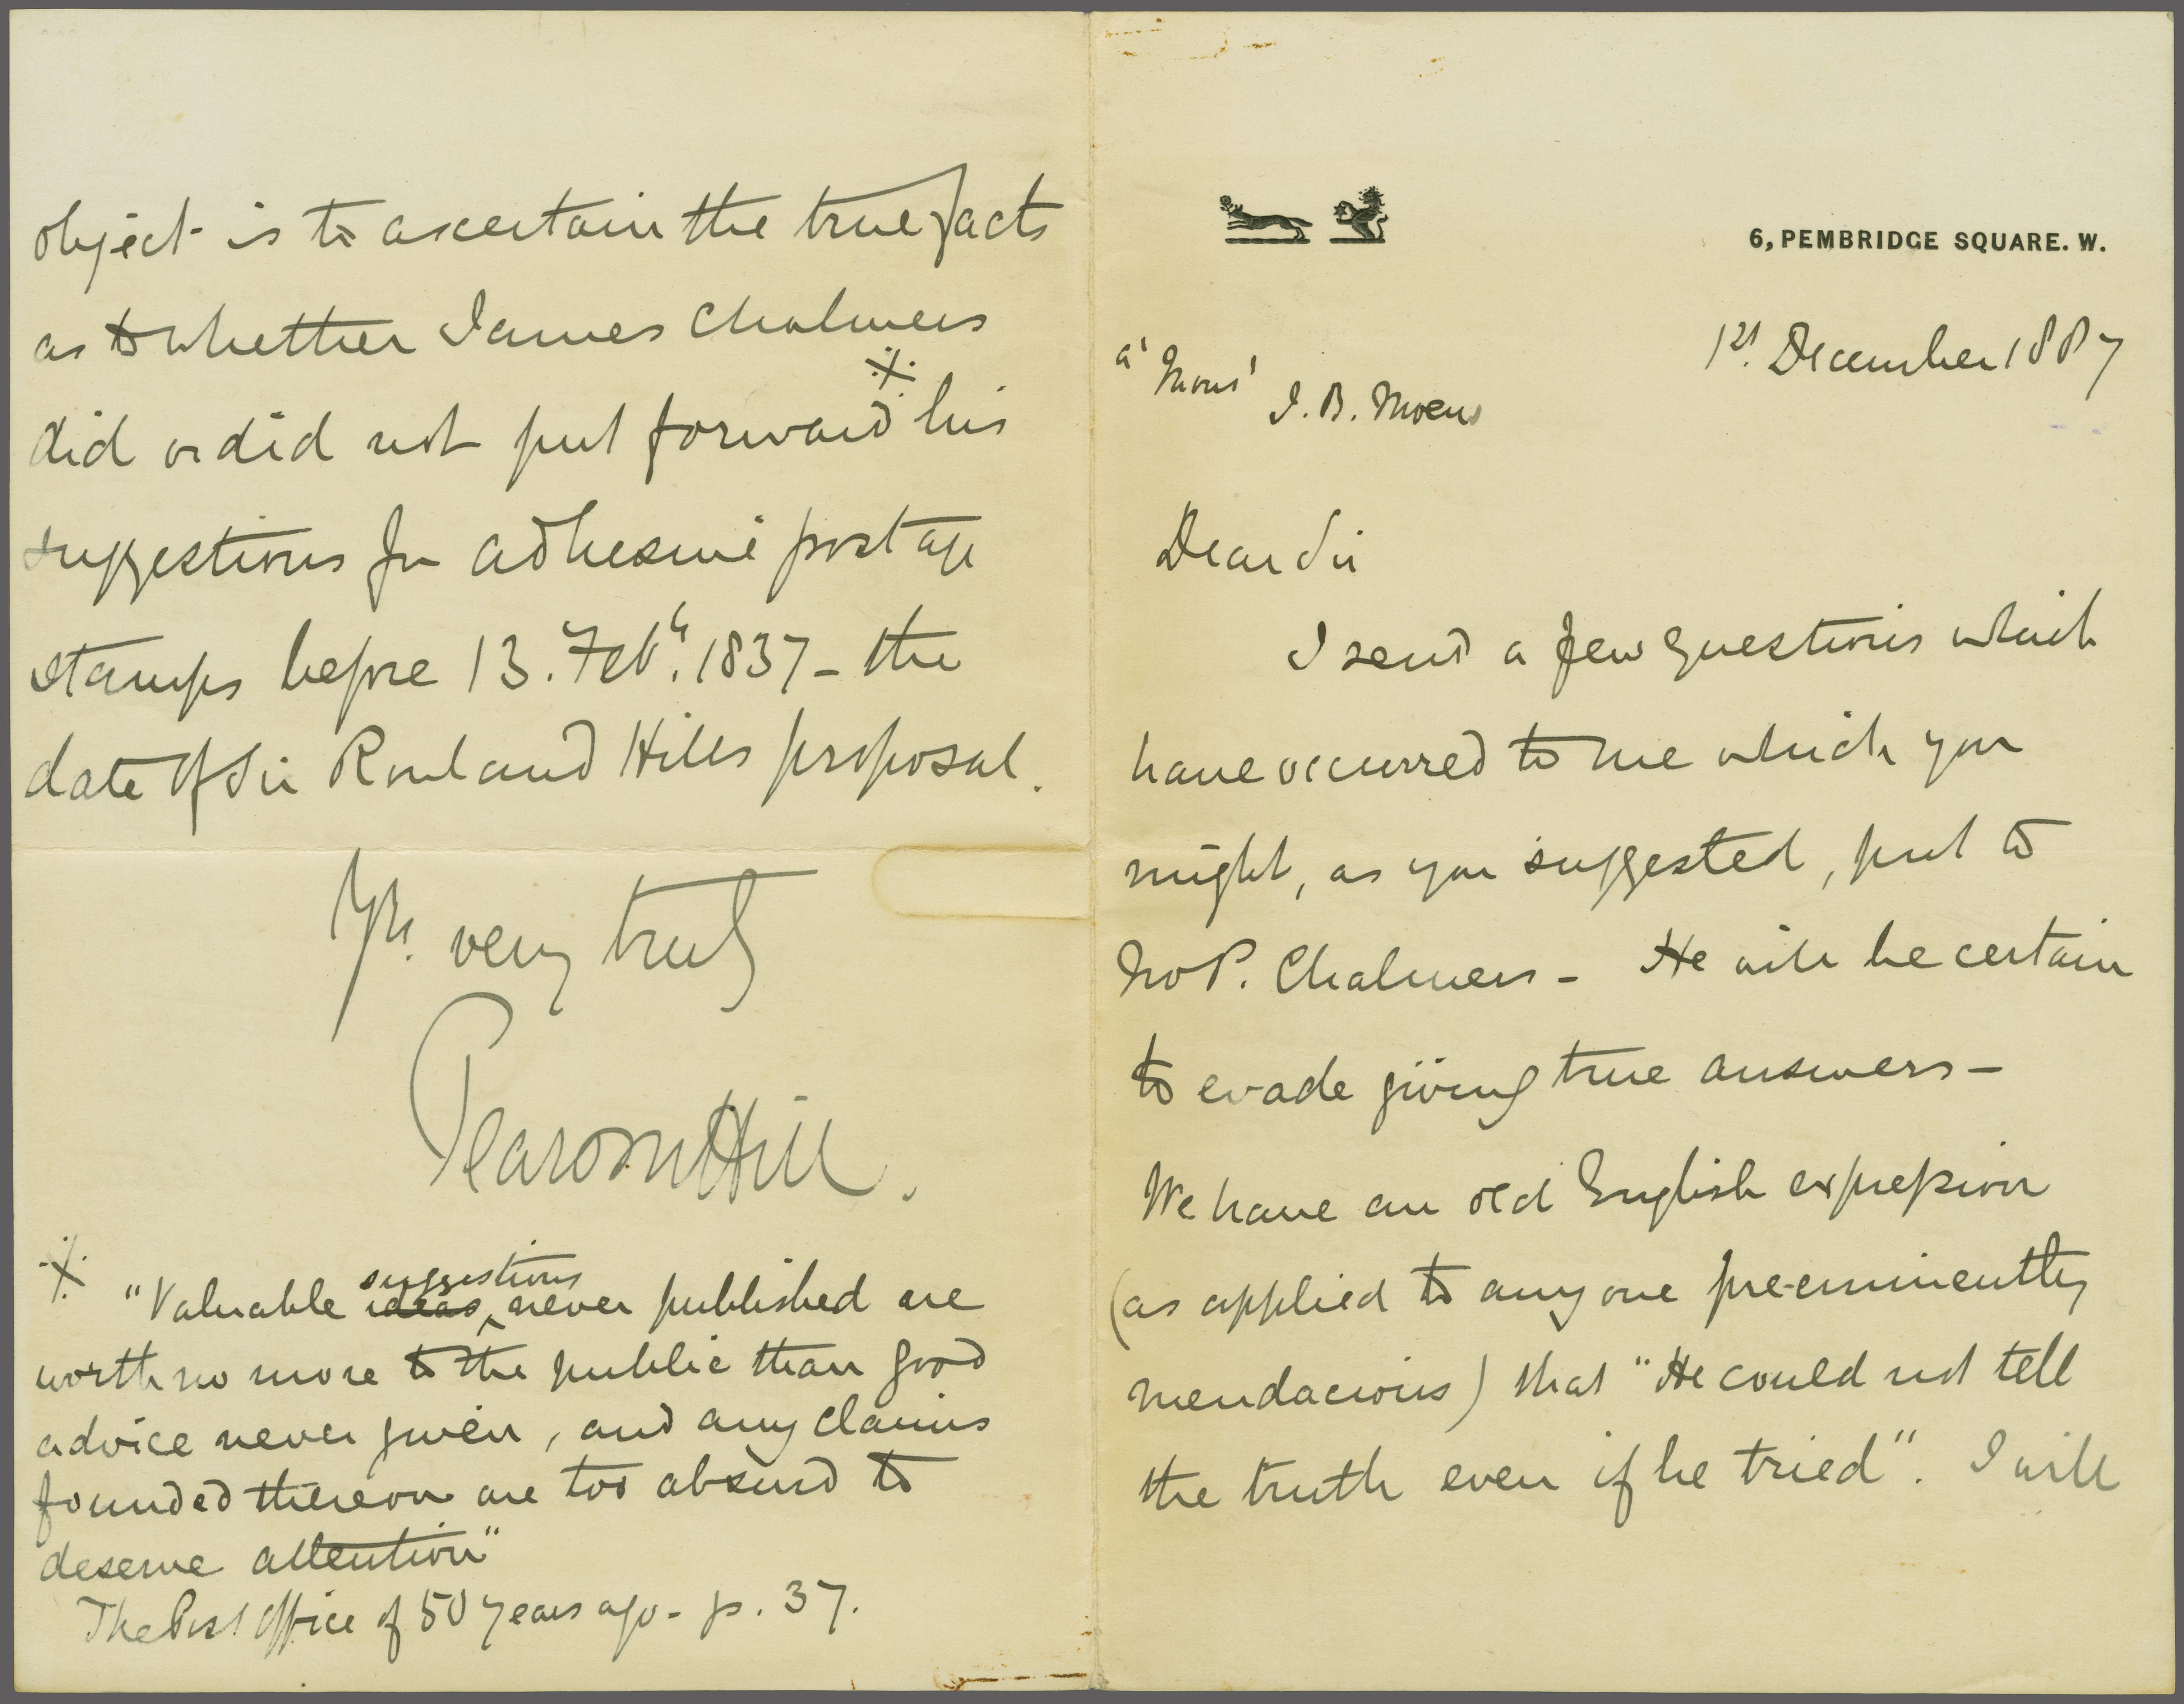 6, PEMBRIDGE SQUARE. W.
1st. December 1887
a' Mons' J. B. Moens
Dear Sir
I send a few questions which
have occurred to me which you
might, as you suggested, put to
Mr P. Chalmers – He will be certain
to evade giving true answers –
We have an old English expression
(as applied to any one pre-eminently
mendacious) that "He could not tell
the truth even if he tried". I will
object is to ascertain the true facts
as to whether James Chalmers
did or did not put forward ※ his
suggestions for adhesive postage
stamps before 13. Feby. 1837 – the
date of Sir Rowland Hills proposal.
Yrs. very truly
Pearson Hill.
※ "Valuable ideas suggestions never published are
worth no more to the public than good
advice never given, and any claims
founded thereon are too absurd to
deserve attention"
The Post Office of 50 years ago – p. 37.